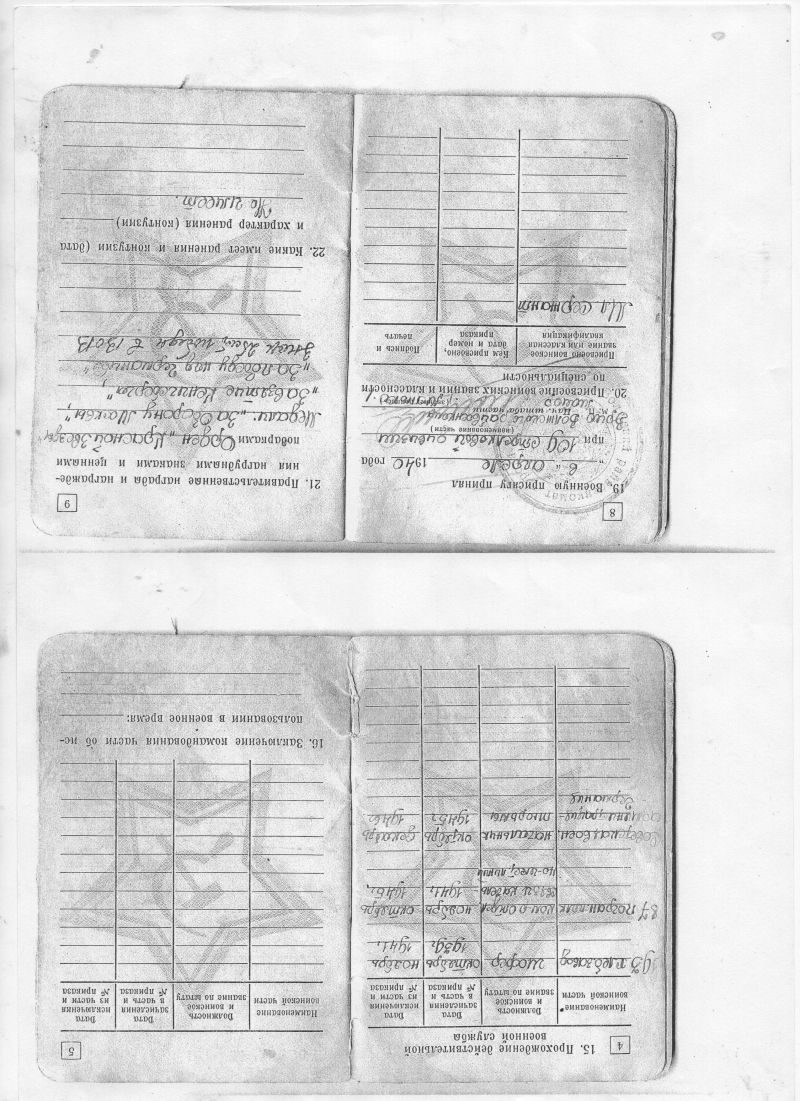 4
15. Прохождение действительной
военной службы
Наименование воинской части
Должность и воинское звание по штату
Дата зачисления в часть и № приказа
Дата исключения из части и № приказа
шофер
октябрь 1939.
ноябрь 1941.
87 погран полк
ком отдел.
ноябрь 1941.
октябрь 1946.
начальник тюрьмы
октябрь 1945.
декабрь 1946.
Германия
5
Наименование воинской части
Должность и воинское звание по штату
Дата зачисления в часть и № приказа
Дата исключения из части и № приказа
16. Заключение командования части об ис-
пользовании в военное время:
8
19. Военную присягу принял
„6“ апреле 1940 года
при 109 стрелковой дивизии
(наименование части)
Нач. штаба части
20. Присвоение воинских званий и классности
по специальности
Присвоено воинское звание или классная квалификация
Кем присвоено, дата и номер приказа
Подпись и печать
Мл сержант
9
21. Правительственные награды и награжде-
ния нагрудными знаками и ценными
подарками Орден „Красной Звезды“
Медали: „За Оборону Москвы“,
„За взятие Кенигсберга“,
„За победу над Германией“
Знак 25 лет победы в ВОВ
22. Какие имеет ранения и контузии (дата
и характер ранения (контузии)
Не имеет.